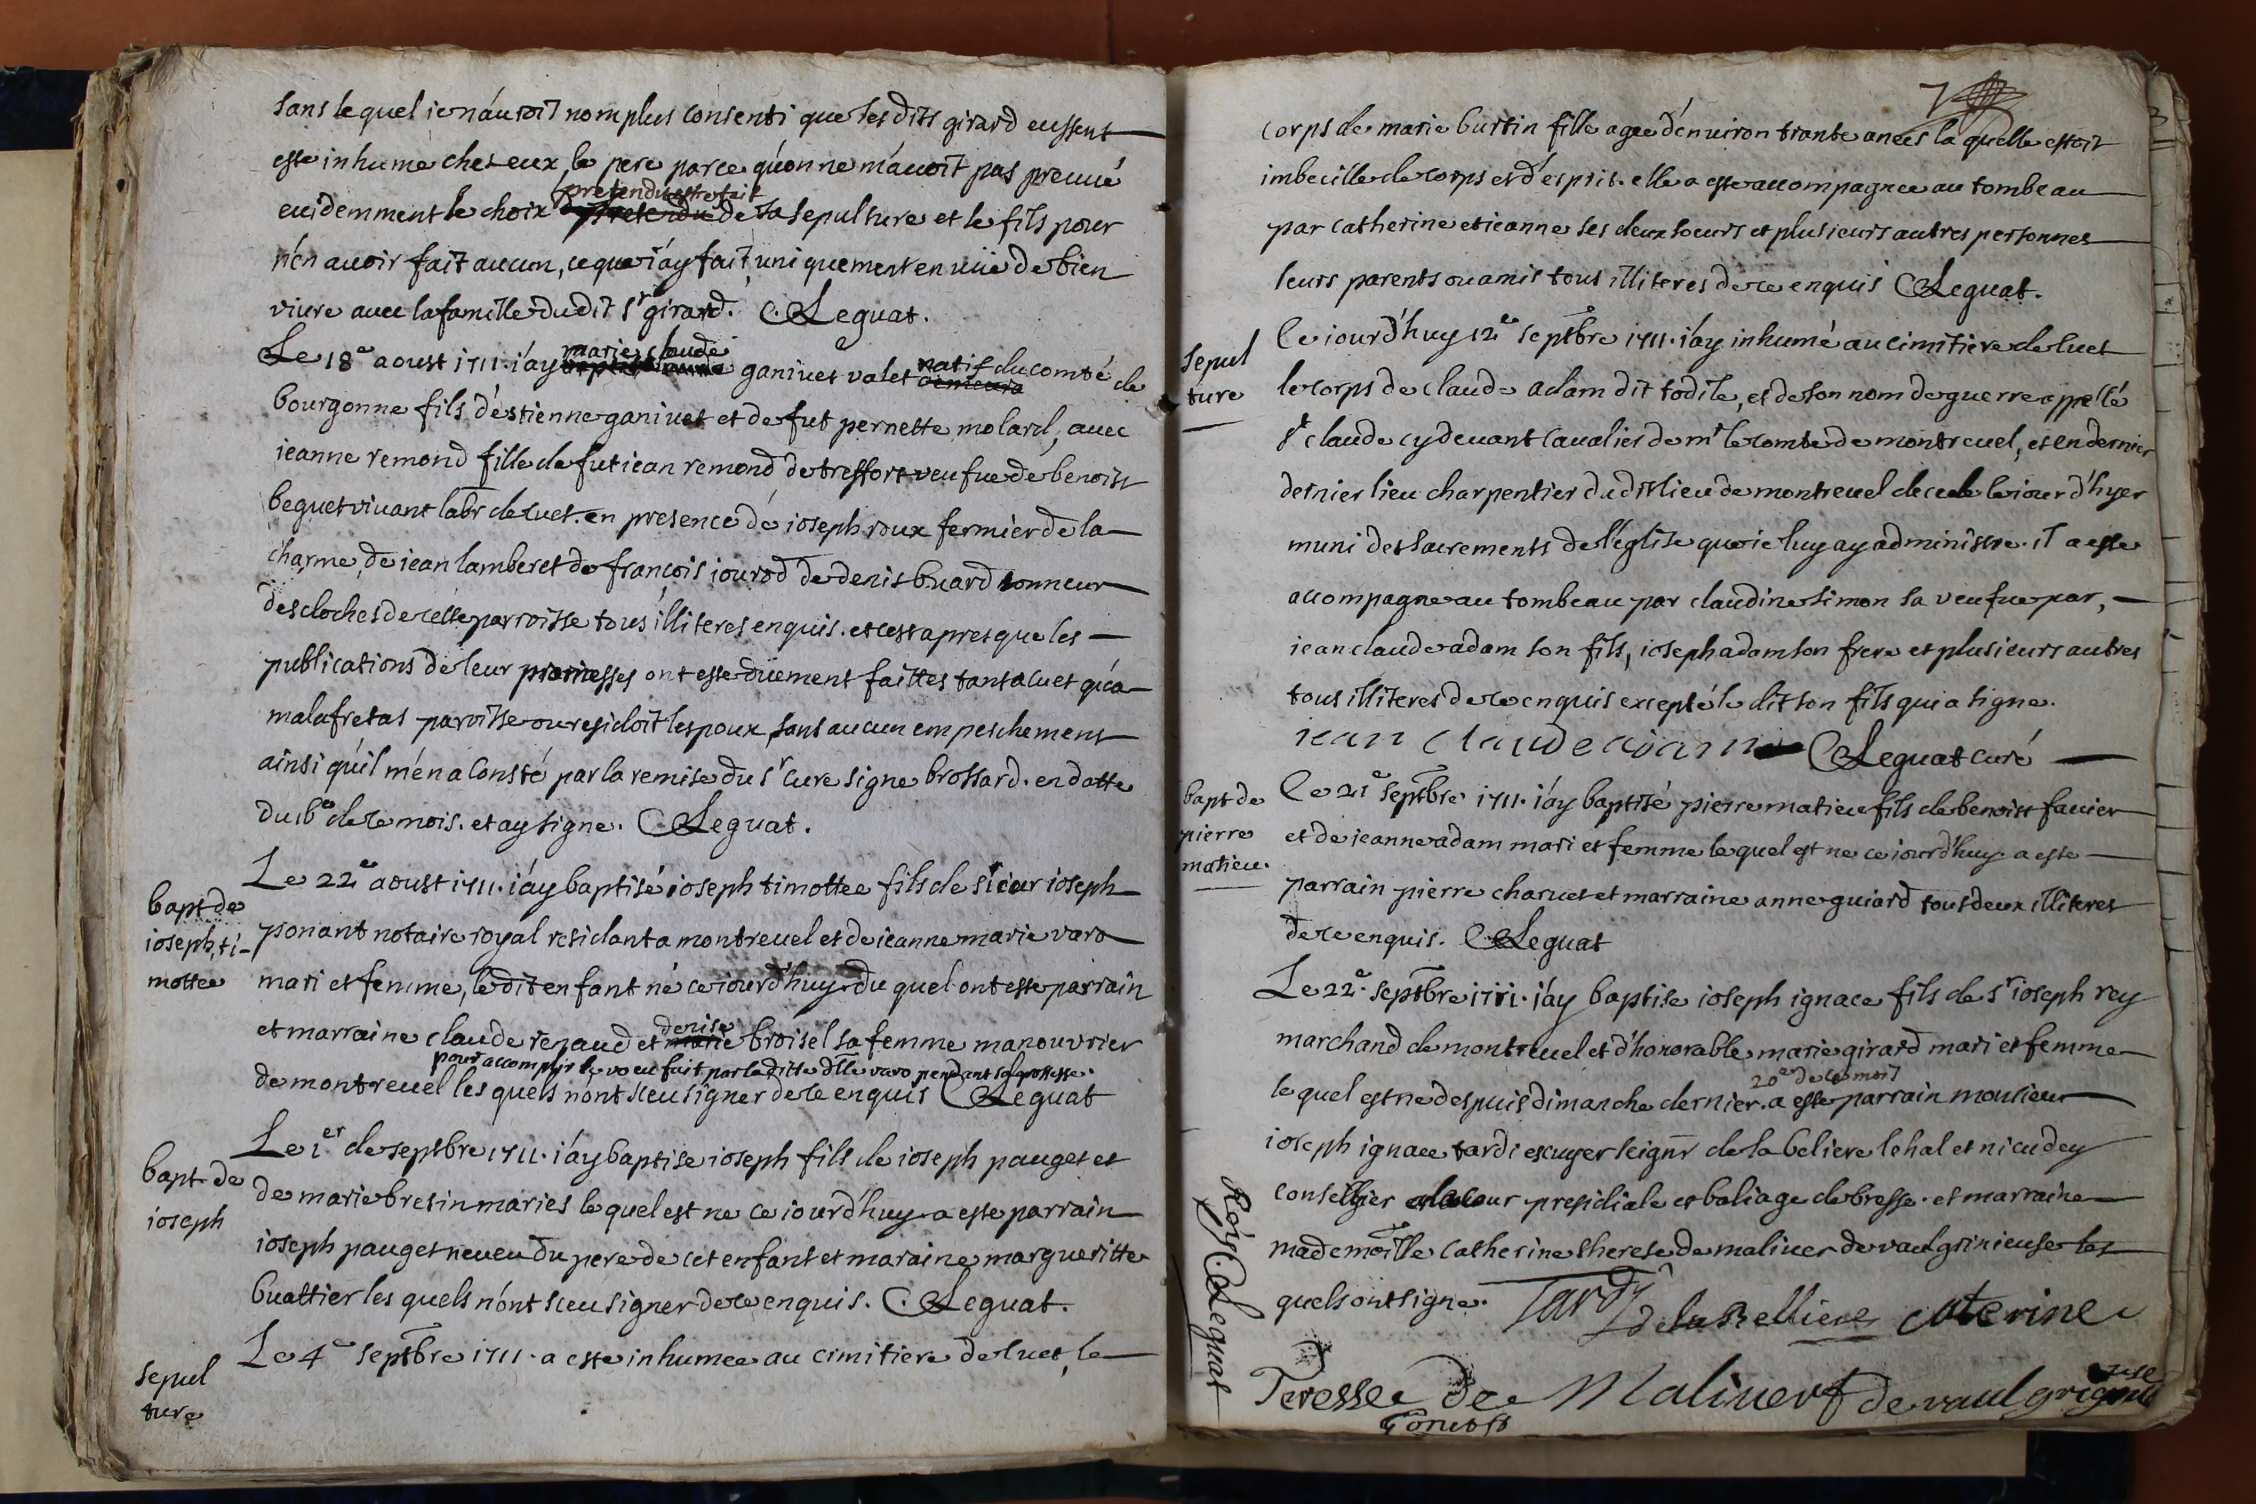 sans le quel ie náuroit nomplus consenti que les dits girard eussent
este inhume ches eux, le pere parce quónne máuoit pas preuué
pretendu estre fait
euidemment le choix pretendu de sa sepulture et le fils pour
nén auoir fait aucun, ce que iáy fait uniquement en uüe de bien
viure auec la famille du dit sr girard. C. Leguat.
marie claude natif
Le 18e aoust 1711. iáy ganiuet valet du comté de
bourgonne fils déstienne ganiuet et de fut pernette molard, auec
ieanne remond fille de fut iean remond de treffort veufue de benoist
beguet viuant labr de cuet. en presence de ioseph roux fermier de la
charme, de iean lamberet de françois iourod de denis buard sonneur
des cloches de celle parroisse tous illiteres enquis. et cest apres que les
publications de leur promesses ont este düement faittes tant a cuet qúa
malafretas paroisse ou residoit lespoux, sans aucun empeschement
ainsi quíl mén a consté par la remise du sr cure signe brossard. en datte
du 16e de ce mois. et ay signe. C Leguat.
bapt de ioseph, ti-mottee
Le 22e aoust 1711. iáy baptisé ioseph timottee fils de sieur ioseph
ponant notaire royal residant a montreuel et de ieanne marie varo
mari et femme, le dit enfant né ce iourd'huy. du quel ont este parrain
denise
et marraine claude renaud et marie broisel sa femme manouvrier
pour accomplir le voeu fait par la ditte dlle varo pendant sa grossesse.
de montreuel les quels nónt sceu signer de ce enquis C Leguat
bapt de ioseph
Le 1er de septbre 1711. iáy baptise ioseph fils de ioseph pauget et
de marie bretin maries le quel est ne ce iourd'huy. a este parrain
ioseph pauget neueu du pere de cet enfant et maraine margueritte
buattier les quels nónt sceu signer de ce enquis. C. Leguat.
sepulture
Le 4e septbre 1711. a este inhumee au cimitiere de cuet, le
7
corps de marie burtin fille agee dénuiron trante anées la quelle estoit
imbecille de corps et désprit. elle a este accompagnee au tombeau
par catherine et ieanne ses deux soeurs et plusieurs autres personnes
leurs parents ou amis tous illiteres de ce enquis C Leguat.
sepulture
Ce iourd'huy 12e septbre 1711. iáy inhumé au cimitiere de cuet
le corps de claude adam dit todile, et de son nom de guerre appellé
st claude cy deuant caualier de mr le comte de montreuel, et en dernier
dernier lieu charpentier du dit lieu de montreuel decede le iour d'hyer
muni des sacrements de léglise que ie luy ay administre. il a este
accompagne au tombeau par claudine simon sa veufue par,
iean claude adam son fils, ioseph adam son frere et plusieurs autres
tous illiteres de ce enquis excepté le dit son fils qui a signe.
iean claude adam C Leguat curé
bapt de pierre matieu.
Ce 21e septbre 1711. iáy baptisé pierre matieu fils de benoist fauier
et de ieanne adam mari et femme le quel est ne ce iourd'huy. a este
parrain pierre charuet et marraine anne guiard tous deux illiteres
de ce enquis. C Leguat
Le 22e. septbre 1711. iáy baptise ioseph ignace fils de sr ioseph rey
marchand de montreuel et d'honorable marie girard mari et femme
20e de ce mois
le quel est ne despuis dimanche dernier. a este parrain monsieur
ioseph ignace tardi escuyer seignr de la beliere lehal et nicudey
conseillier a la cour presidiale et baliage de bresse. et marraine
mademoille catherine therese de maliuer de vaulgrinieuse les
quels ont signe. Tardy de la Belliere caterine
Teresse de Malivert de vaulgrigneuse
Rey C Leguat